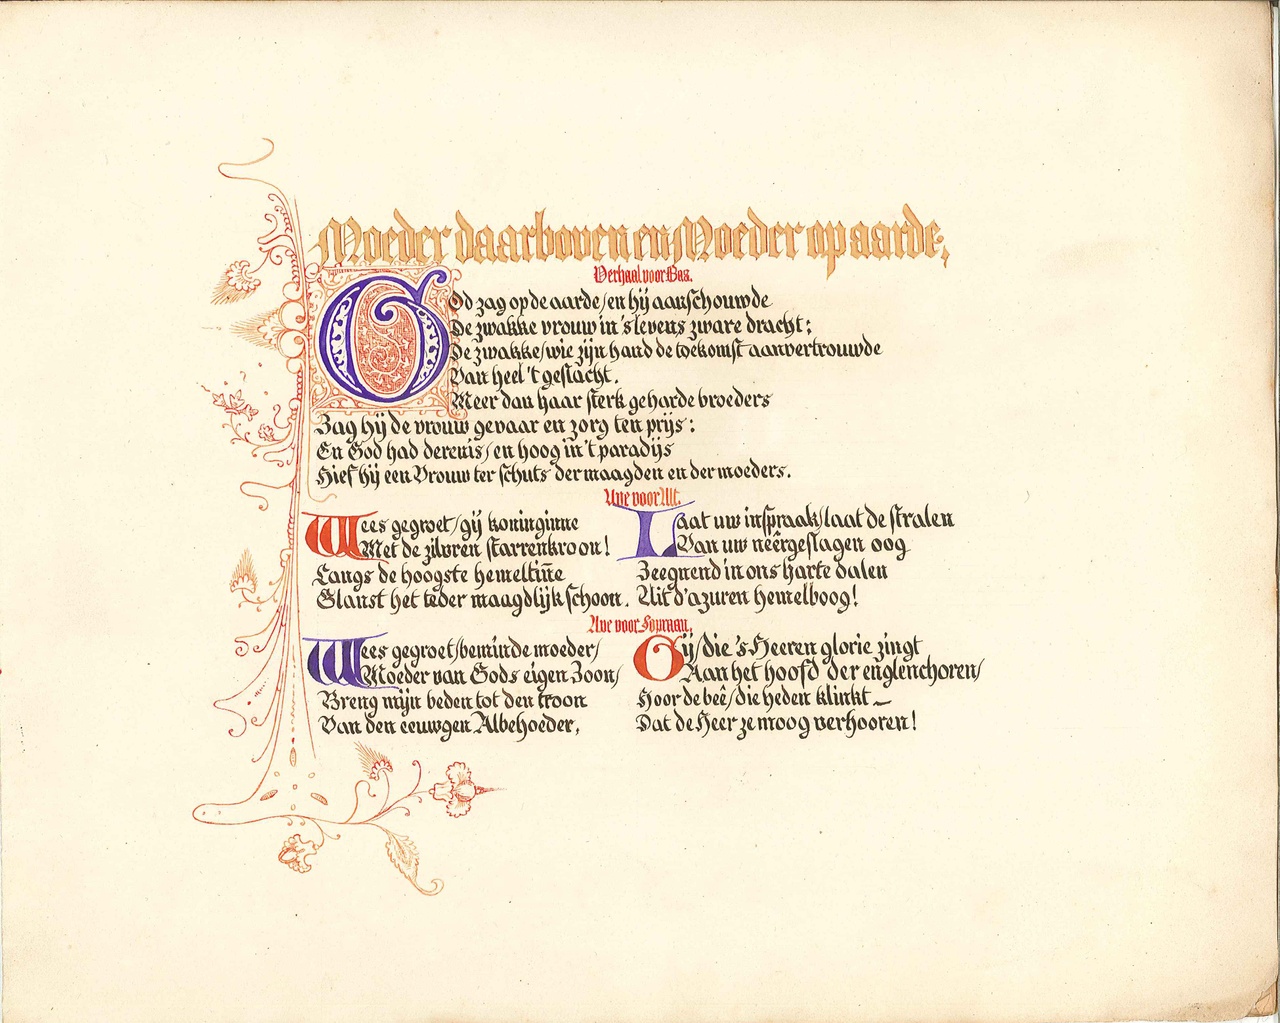 Moeder daarboven en Moeder op aarde,
Verhaal voor Bas.
God zag op de aarde/en hij aanschouwde
De zwakke vrouw in 's levens zware dracht;
De zwakke/wie zijn hand de toekomst aanvertrouwde
Van heel 't geslacht.
Meer dan haar sterk geharde broeders
Zag hij de vrouw gevaar en zorg ten prijs:
En God had derenis/en hoog in 't paradijs
Hief hij een Vrouw ter schuts der maagden en der moeders.
Ave voor Alt.
Wees gegroet/gij koninginne
Met de zilvren starrenkroon!
Langs de hoogste hemeltinne
Glanst het teder maagdlijk schoon.
Laat uw inspraak/laat de stralen
Van uw neêrgeslagen oog
Zeegnend in ons harte dalen
Uit d'azuren hemelboog!
Ave voor Sopraan.
Wees gegroet/beminde moeder/
Moeder van Gods eigen Zoon/
Breng mijn beden tot den troon
Van den eeuwgen Albehoeder,
Gij/die 's Heeren glorie zingt
Aan het hoofd der englenchoren/
Hoor de beê/die heden klinkt —
Dat de Heer ze moog verhooren!